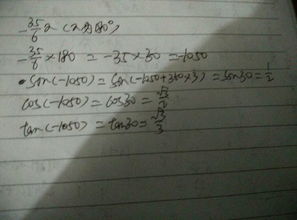 -35/6 π (π=180°)
-35/6 × 180 = -35×30 = -1050
• sin(-1050) = sin(-1050+360×3) = sin30 = 1/2
cos(-1050) = cos30 = √3/2
tan(-1050) = tan30 = √3/3